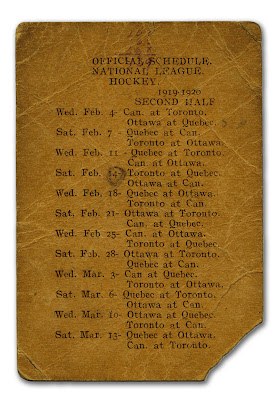 OFFICIAL SCHEDULE.
NATIONAL LEAGUE.
HOCKEY.
1919-1920
SECOND HALF
Wed. Feb. 4- Can. at Toronto.
Ottawa at Quebec.
Sat. Feb. 7 - Quebec at Can.
Toronto at Ottawa.
Wed. Feb. 11 - Quebec at Toronto.
Can. at Ottawa.
Sat. Feb. 14- Toronto at Quebec.
Ottawa at Can.
Wed. Feb. 18- Quebec at Ottawa.
Toronto at Can.
Sat. Feb. 21- Ottawa at Toronto.
Can. at Quebec.
Wed. Feb 25- Can. at Ottawa.
Toronto at Quebec
Sat. Feb. 28- Ottawa at Toronto.
Quebec at Can.
Wed. Mar. 3- Can. at Quebec.
Toronto at Ottawa.
Sat. Mar. 6- Quebec at Toronto.
Ottawa at Can-
Wed. Mar. 10- Ottawa at Quebec.
Toronto at Can.
Sat. Mar. 13- Quebec at Ottawa.
Can. at Toronto.